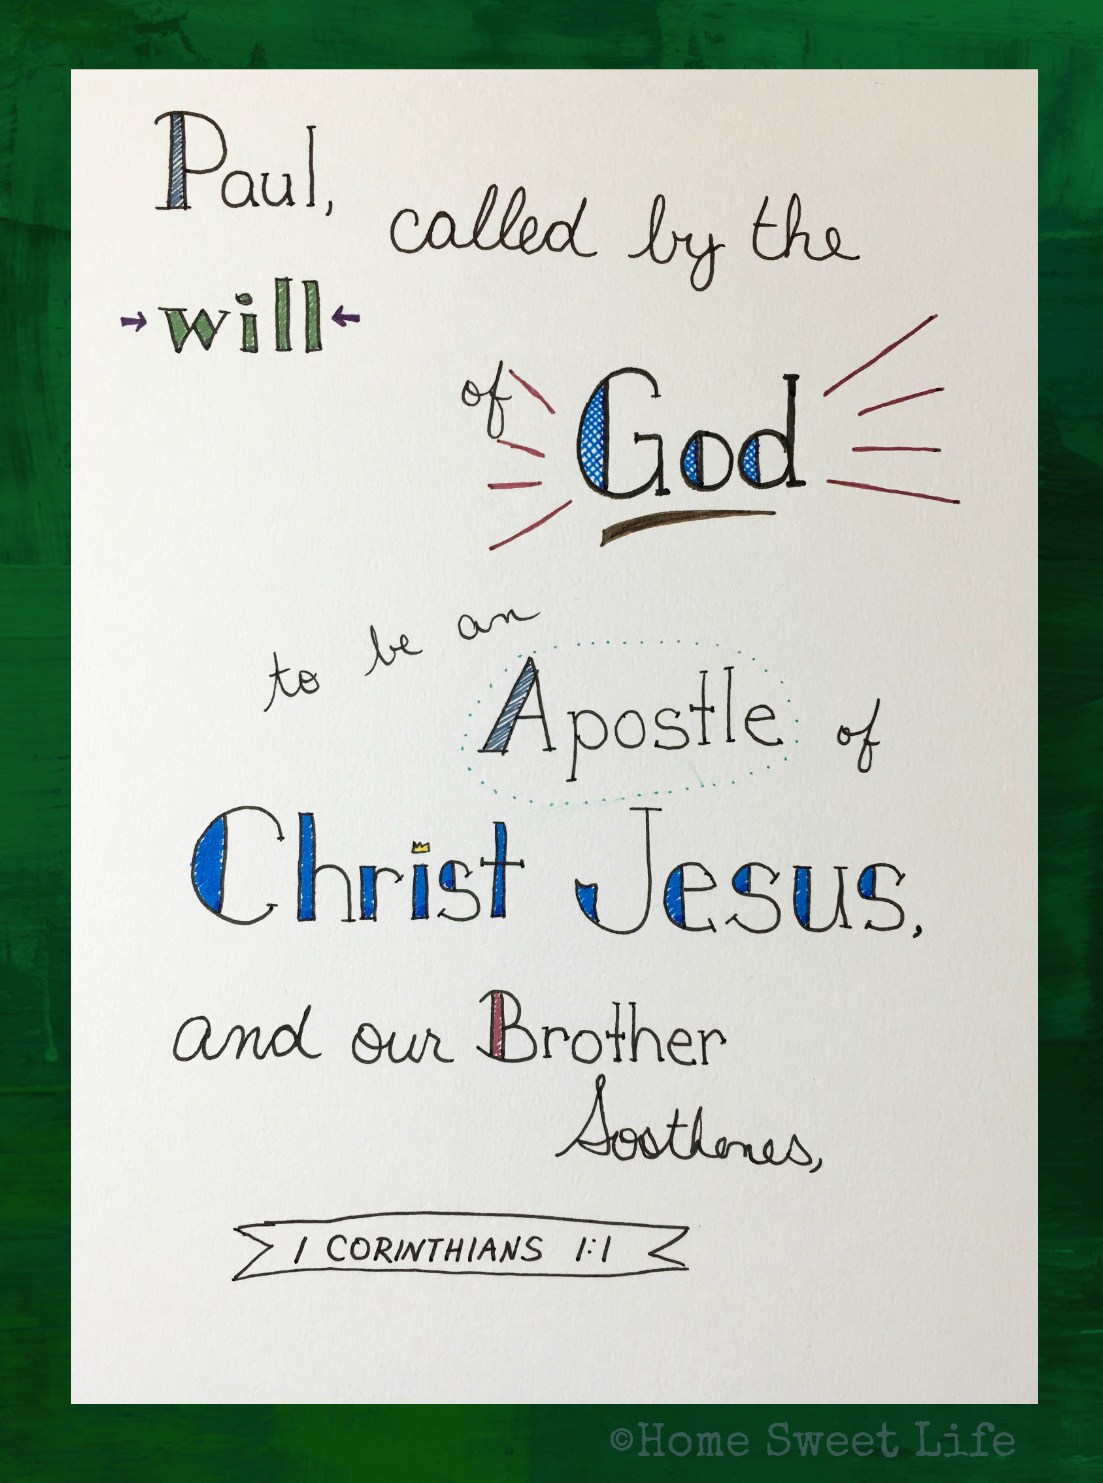 Paul,
called by the
will
of God
to be an
Apostle of
Christ Jesus,
and our Brother
Sosthenes,
1 CORINTHIANS 1:1
©Home Sweet Life